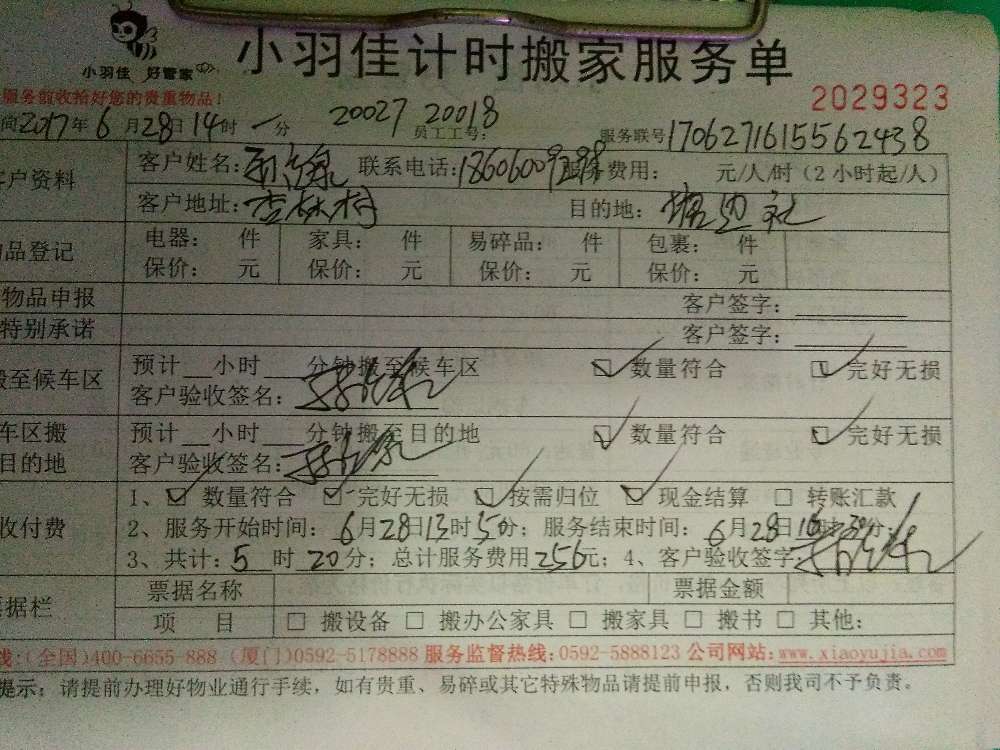 小羽佳 好管家
小羽佳计时搬家服务单
服务前收拾好您的贵重物品!
2029323
2017年6月28日14时一分 20027 20018
员工工号: 服务联号17062716155562438
客户资料 客户姓名: 联系电话:1860600 费用: 元/人/时(2小时起/人)
客户地址:杏林村 目的地:
品登记 电器: 件 家具: 件 易碎品: 件 包裹: 件
保价: 元 保价: 元 保价: 元 保价: 元
物品申报 客户签字:
特别承诺 客户签字:
搬至候车区 预计__小时___分钟搬至候车区 ☑数量符合 ☑完好无损
客户验收签名:
车区搬 预计__小时___分钟搬至目的地 ☑数量符合 ☑完好无损
目的地 客户验收签名:
1、☑数量符合 ☑完好无损 ☑按需归位 ☑现金结算 □转账汇款
收付费 2、服务开始时间:6月28日13时50分;服务结束时间:6月28日
3、共计:5时20分;总计服务费用256元;4、客户验收签字:
票据栏 票据名称 票据金额
项 目 □搬设备 □搬办公家具 □搬家具 □搬书 □其他:
线:(全国)400-6655-888 (厦门)0592-5178888 服务监督热线:0592-5888123 公司网站:www.xiaoyujia.com
提示:请提前办理好物业通行手续,如有贵重、易碎或其它特殊物品请提前申报,否则我司不予负责。